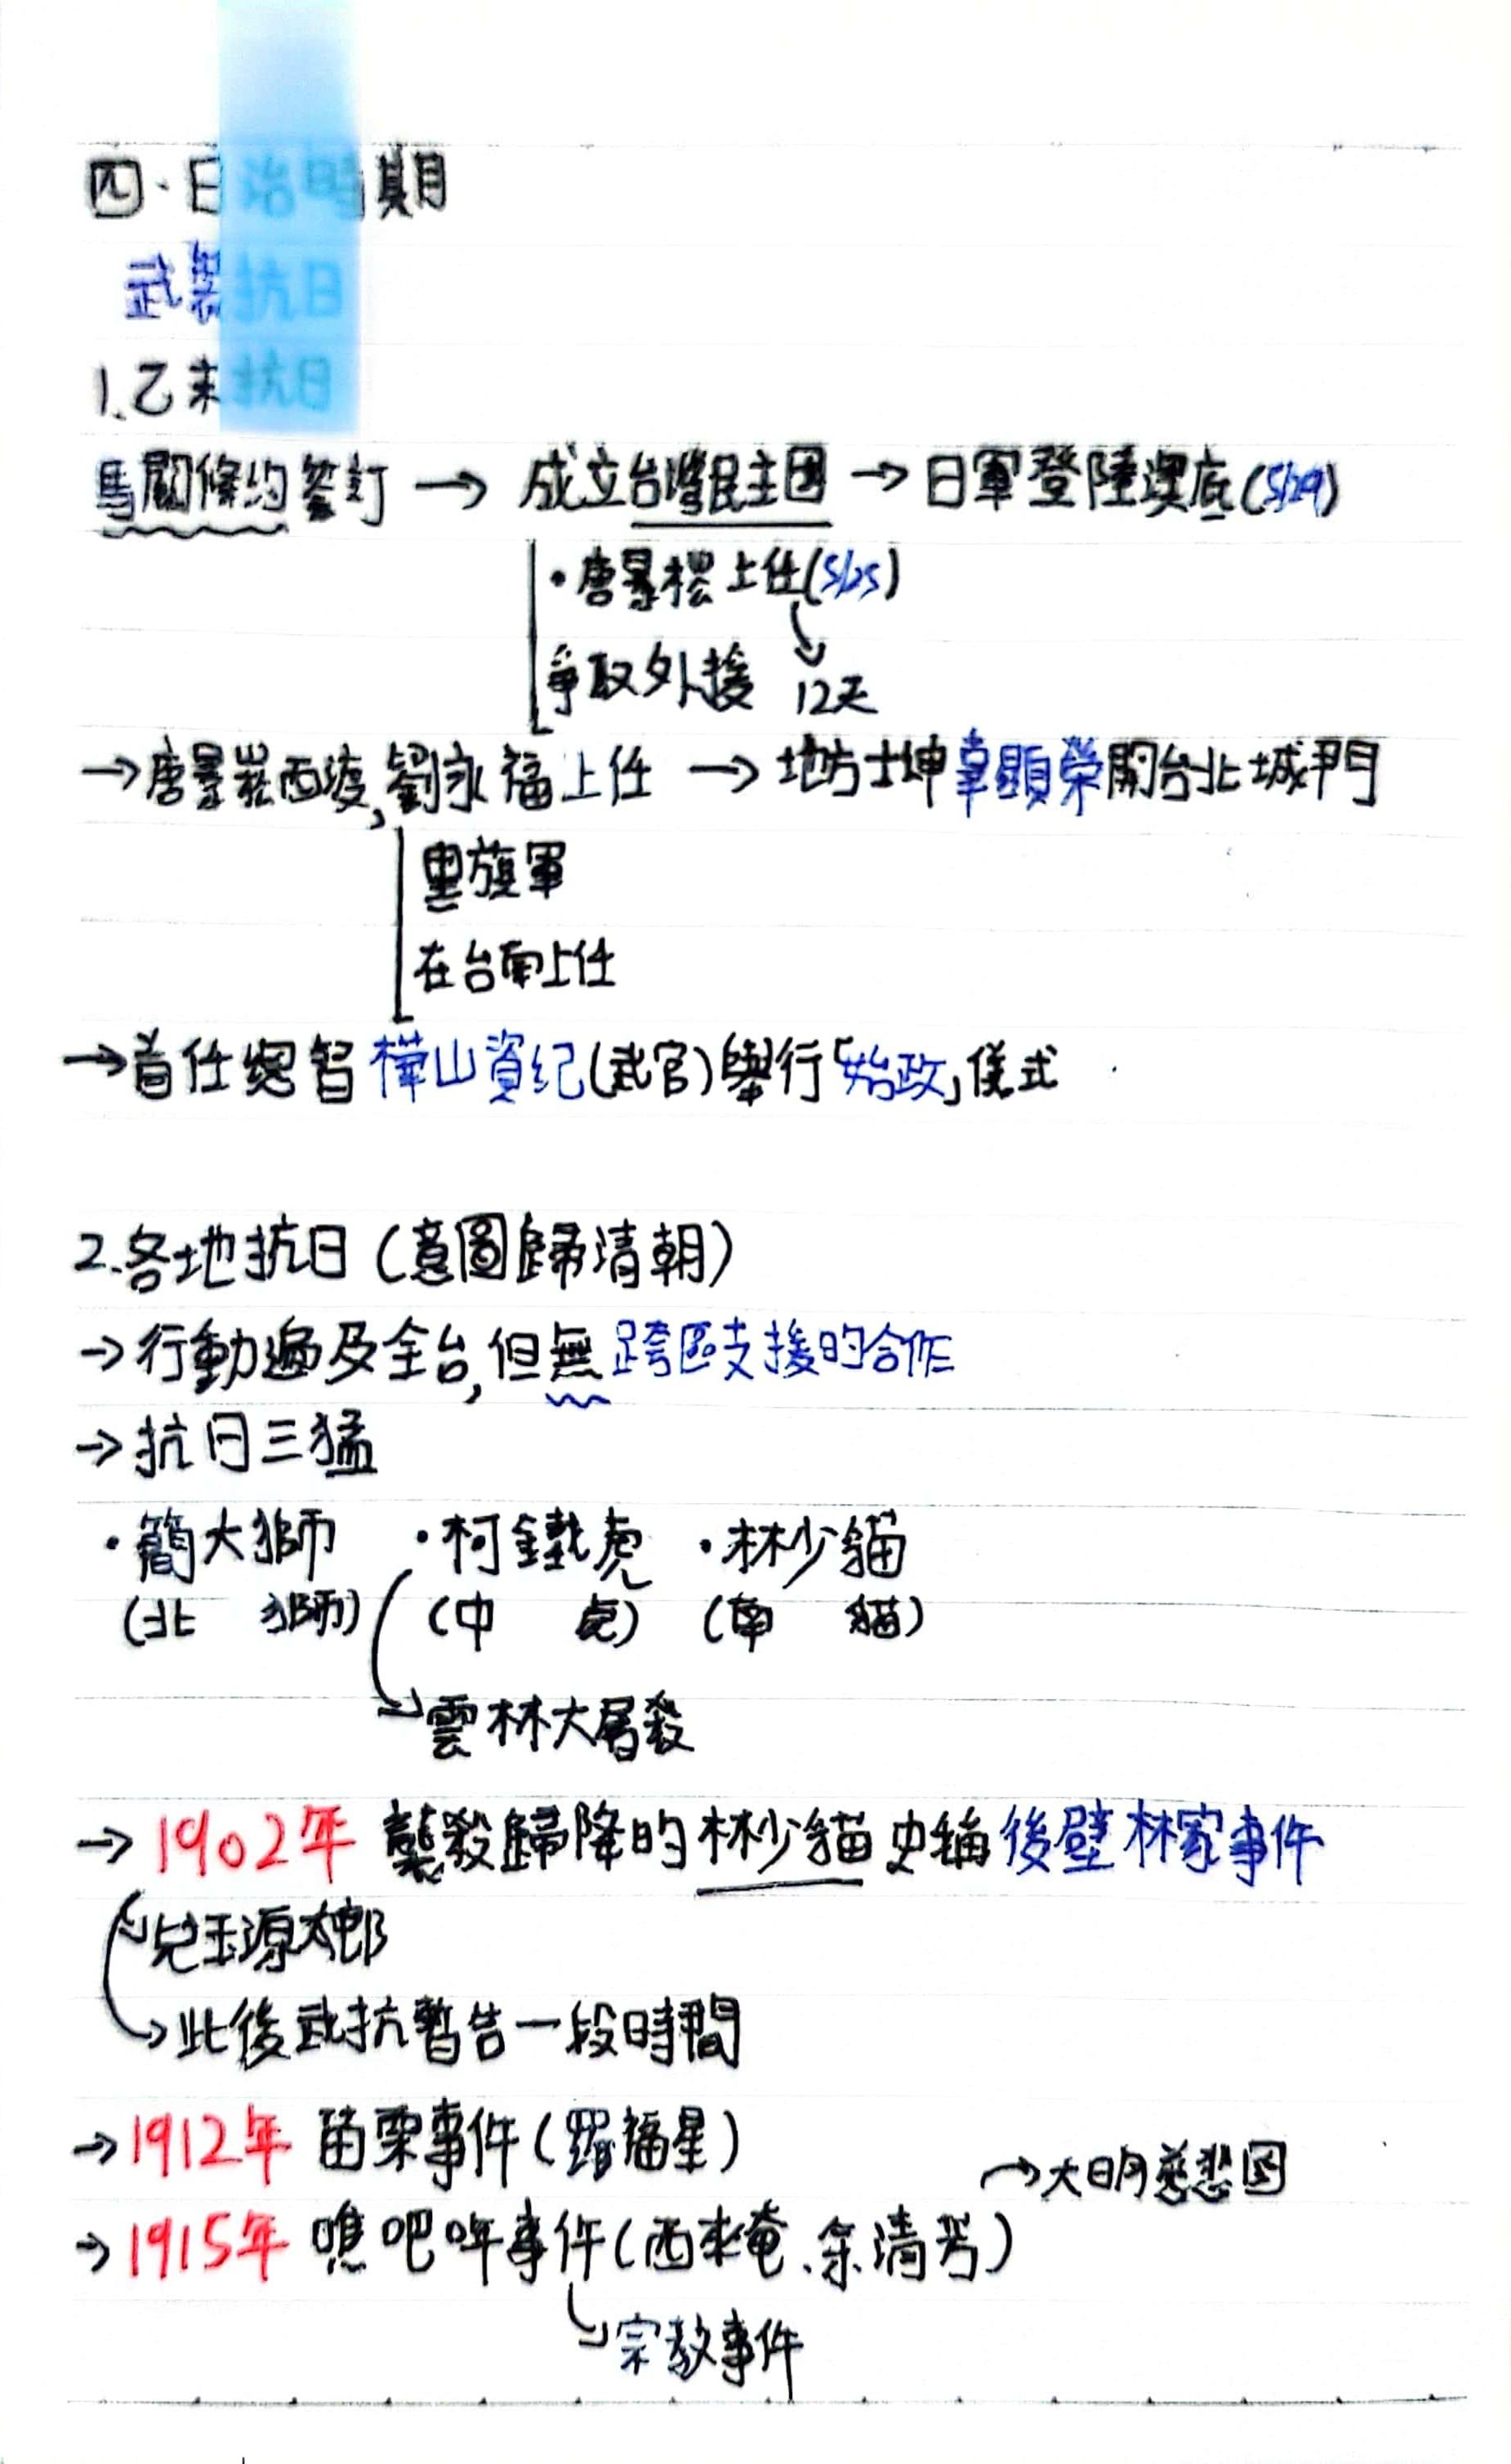 四、日治時期
武裝抗日
1.乙未抗日
馬關條約簽訂 → 成立台灣民主国 → 日軍登陸澳底(5/29)
・唐景崧上任(5/25)
爭取外援 12天
→唐景崧西渡,劉永福上任 → 地方士坤辜顯榮開台北城門
黑旗軍
在台南上任
→首任總督樺山資紀(武官)舉行「始政」儀式
2.各地抗日(意圖歸清朝)
→行動遍及全台,但無跨區支援的合作
→抗日三猛
・簡大獅 ・柯鐵虎 ・林少貓
(北 獅) (中 虎) (南 貓)
→雲林大屠殺
→1902年 襲殺歸降的林少貓史稱後壁林家事件
兒玉源太郎
→此後武抗暫告一段時間
→1912年 苗栗事件(羅福星)
→大明慈悲国
→1915年 噍吧哖事件(西來庵、余清芳)
→宗教事件